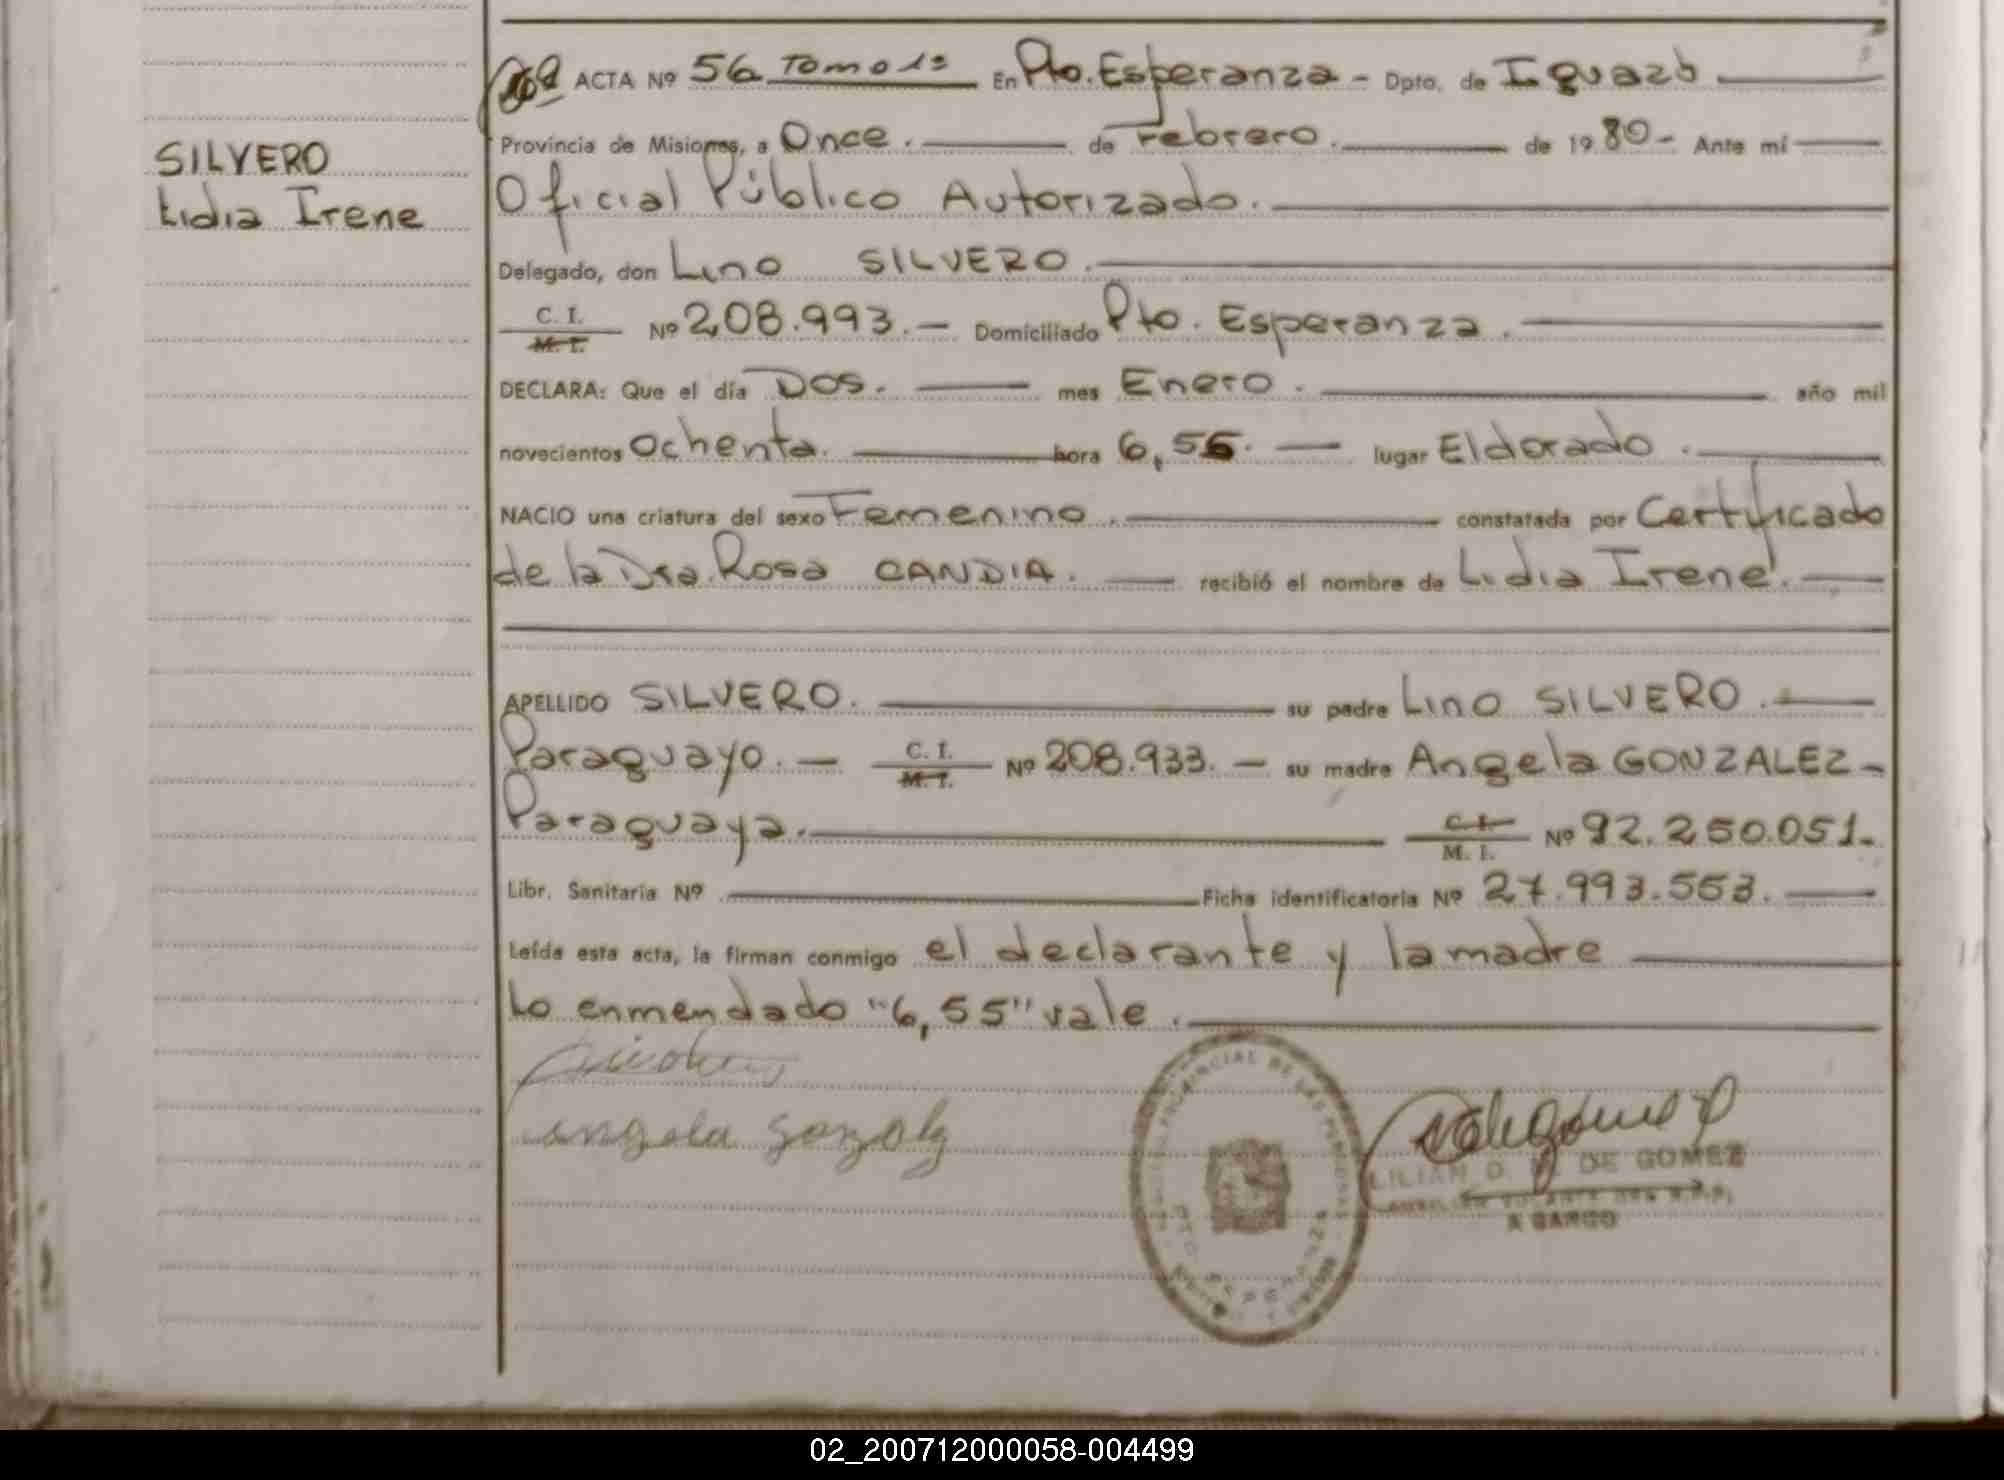 SILVERO
Lidia Irene
ACTA Nº 56 Tomo 1º En Pto. Esperanza - Dpto. de Iguazú
Provincia de Misiones, a Once. de Febrero. de 1980- Ante mí
Oficial Público Autorizado.
Delegado, don Lino SILVERO.
C. I.
M. I.
Nº 208.993.- Domiciliado Pto. Esperanza.
DECLARA: Que el día Dos. mes Enero. año mil
novecientos Ochenta. hora 6,55. lugar Eldorado.
NACIO una criatura del sexo Femenino. constatada por Certificado
de la Dra. Rosa CANDIA. recibió el nombre de Lidia Irene.
APELLIDO SILVERO. su padre Lino SILVERO.
Paraguayo.- C. I. M. I. Nº 208.933.- su madre Angela GONZALEZ-
Paraguaya. C. I. M. I. Nº 92.250.051.-
Libr. Sanitaria Nº Ficha identificatoria Nº 27.993.553.
Leída esta acta, la firman conmigo el declarante y la madre
Lo enmendado "6,55" vale.
angela gonzalz
LILIAN D. DE GOMEZ
A CARGO
PTO ESPERANZA
02_200712000058-004499